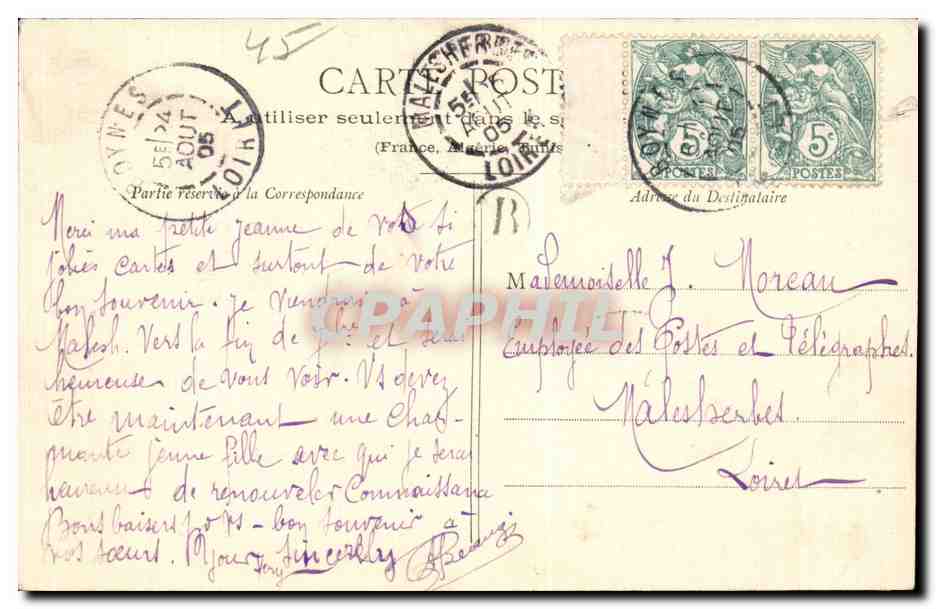 45
CARTE POST
A utiliser seulement dans le s
(France, Algérie, Tunis
BOYNES
5E 24
AOUT
05
LOIRET
MALESHERBES
5E
AOUT
05
LOIRET
BOYNES
AOUT
05
5c
POSTES
5c
POSTES
Partie réservée à la Correspondance
Adresse du Destinataire
B
Merci ma petite Jeanne de vos si
jolies cartes et surtout de votre
bon souvenir. Je viendrai à
Malesh. vers la fin de 7bre et serai
heureuse de vous voir. Vs devez
être maintenant une char-
mante jeune fille avec qui je serai
heureuse de renouveler connaissance
Bons baisers pr vs - bon souvenir à
vos sœurs. Sincerely
Mademoiselle J. Moreau
Employée des Postes et Télégraphes.
Malesherbes
Loiret
CPAPHIL